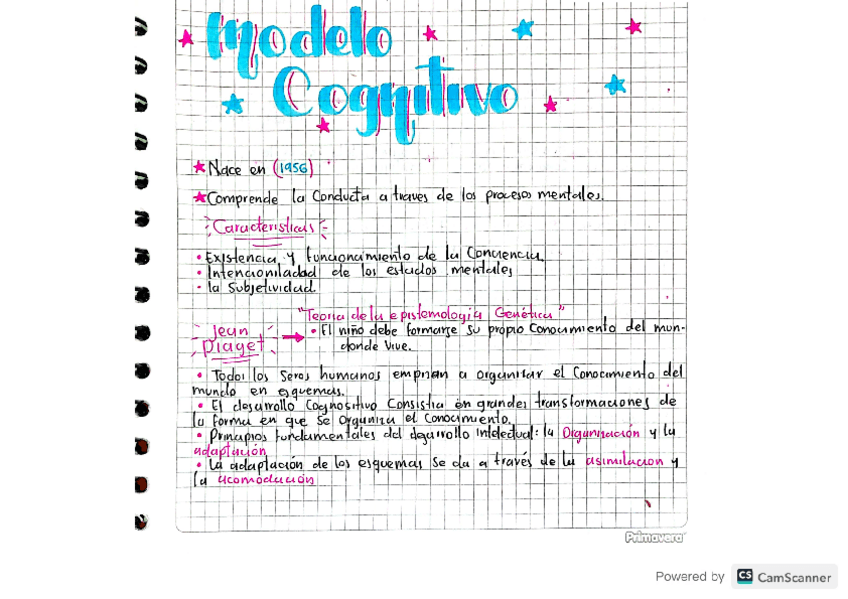 Modelo
Cognitivo
Nace en (1956)
Comprende la Conducta a traves de los procesos mentales.
Caracteristicas
• Existencia y funcionamiento de la Conciencia
• Intencioniladad de los estados mentales
• la Subjetividad.
"Teoria de la epistemologia Genética"
Jean
Piaget
• El niño debe formarse su propio Conocimiento del mun-
donde vive.
• Todos los Seres humanos empiezan a organizar el Conocimiento del
mundo en esquemas.
• El desarrollo Cognositivo Consistia en grandes transformaciones de
la forma en que se organiza el Conocimiento.
• Principios fundamentales del desarrollo intelectual: la Organización y la
adaptación
• La adaptación de los esquemas se da a través de la asimilacion y
la acomodación
Primavera
Powered by CS CamScanner